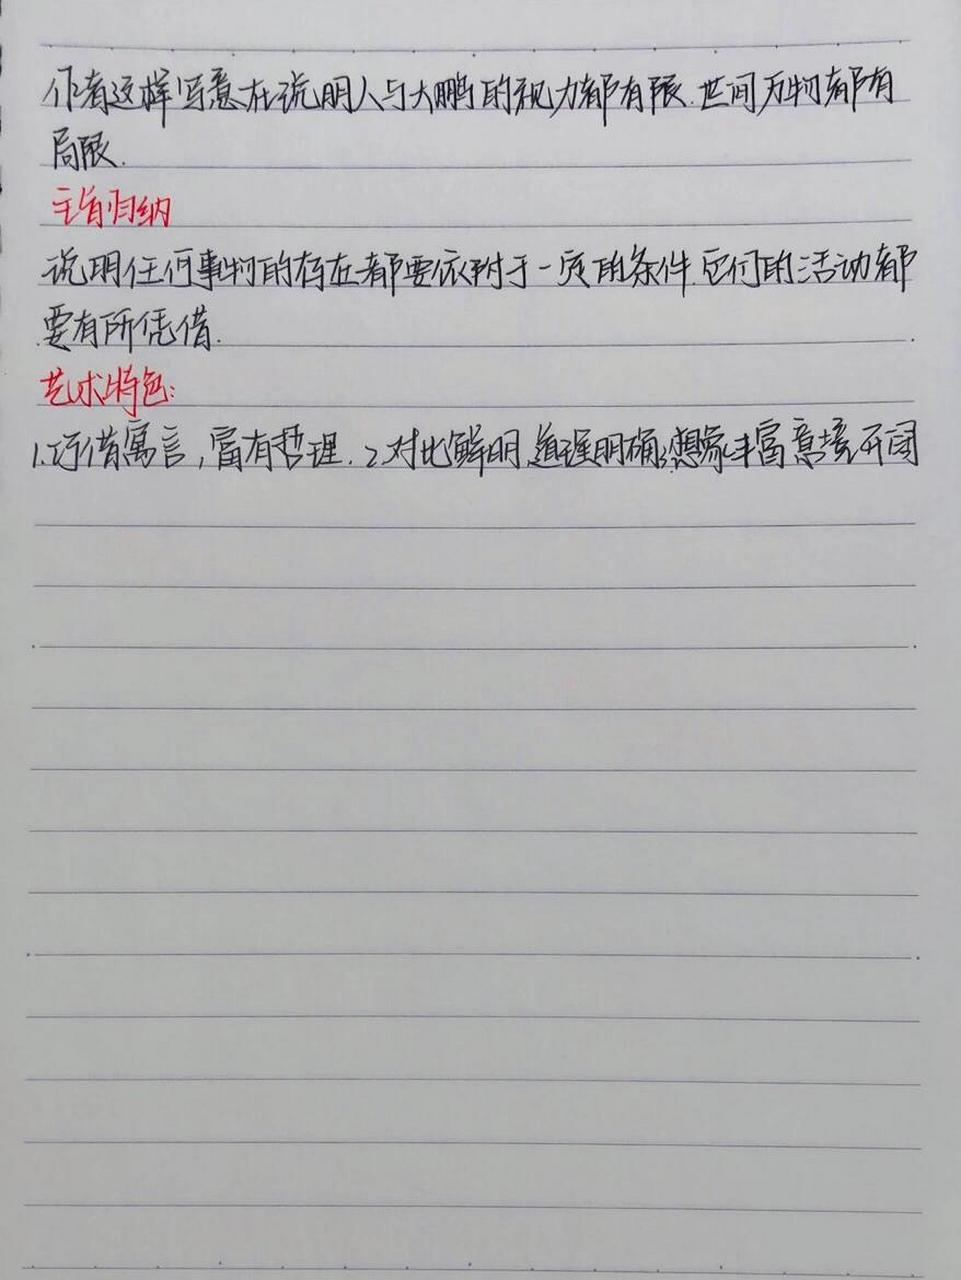 作者这样写意在说明人与大鹏的视力都有限.世间万物都有
局限.
主旨归纳
说明任何事物的存在都要依附于一定的条件.它们的活动都
要有所凭借.
艺术特色:
1.巧借寓言,富有哲理.2.对比鲜明,道理明确3.想象丰富意境开阔